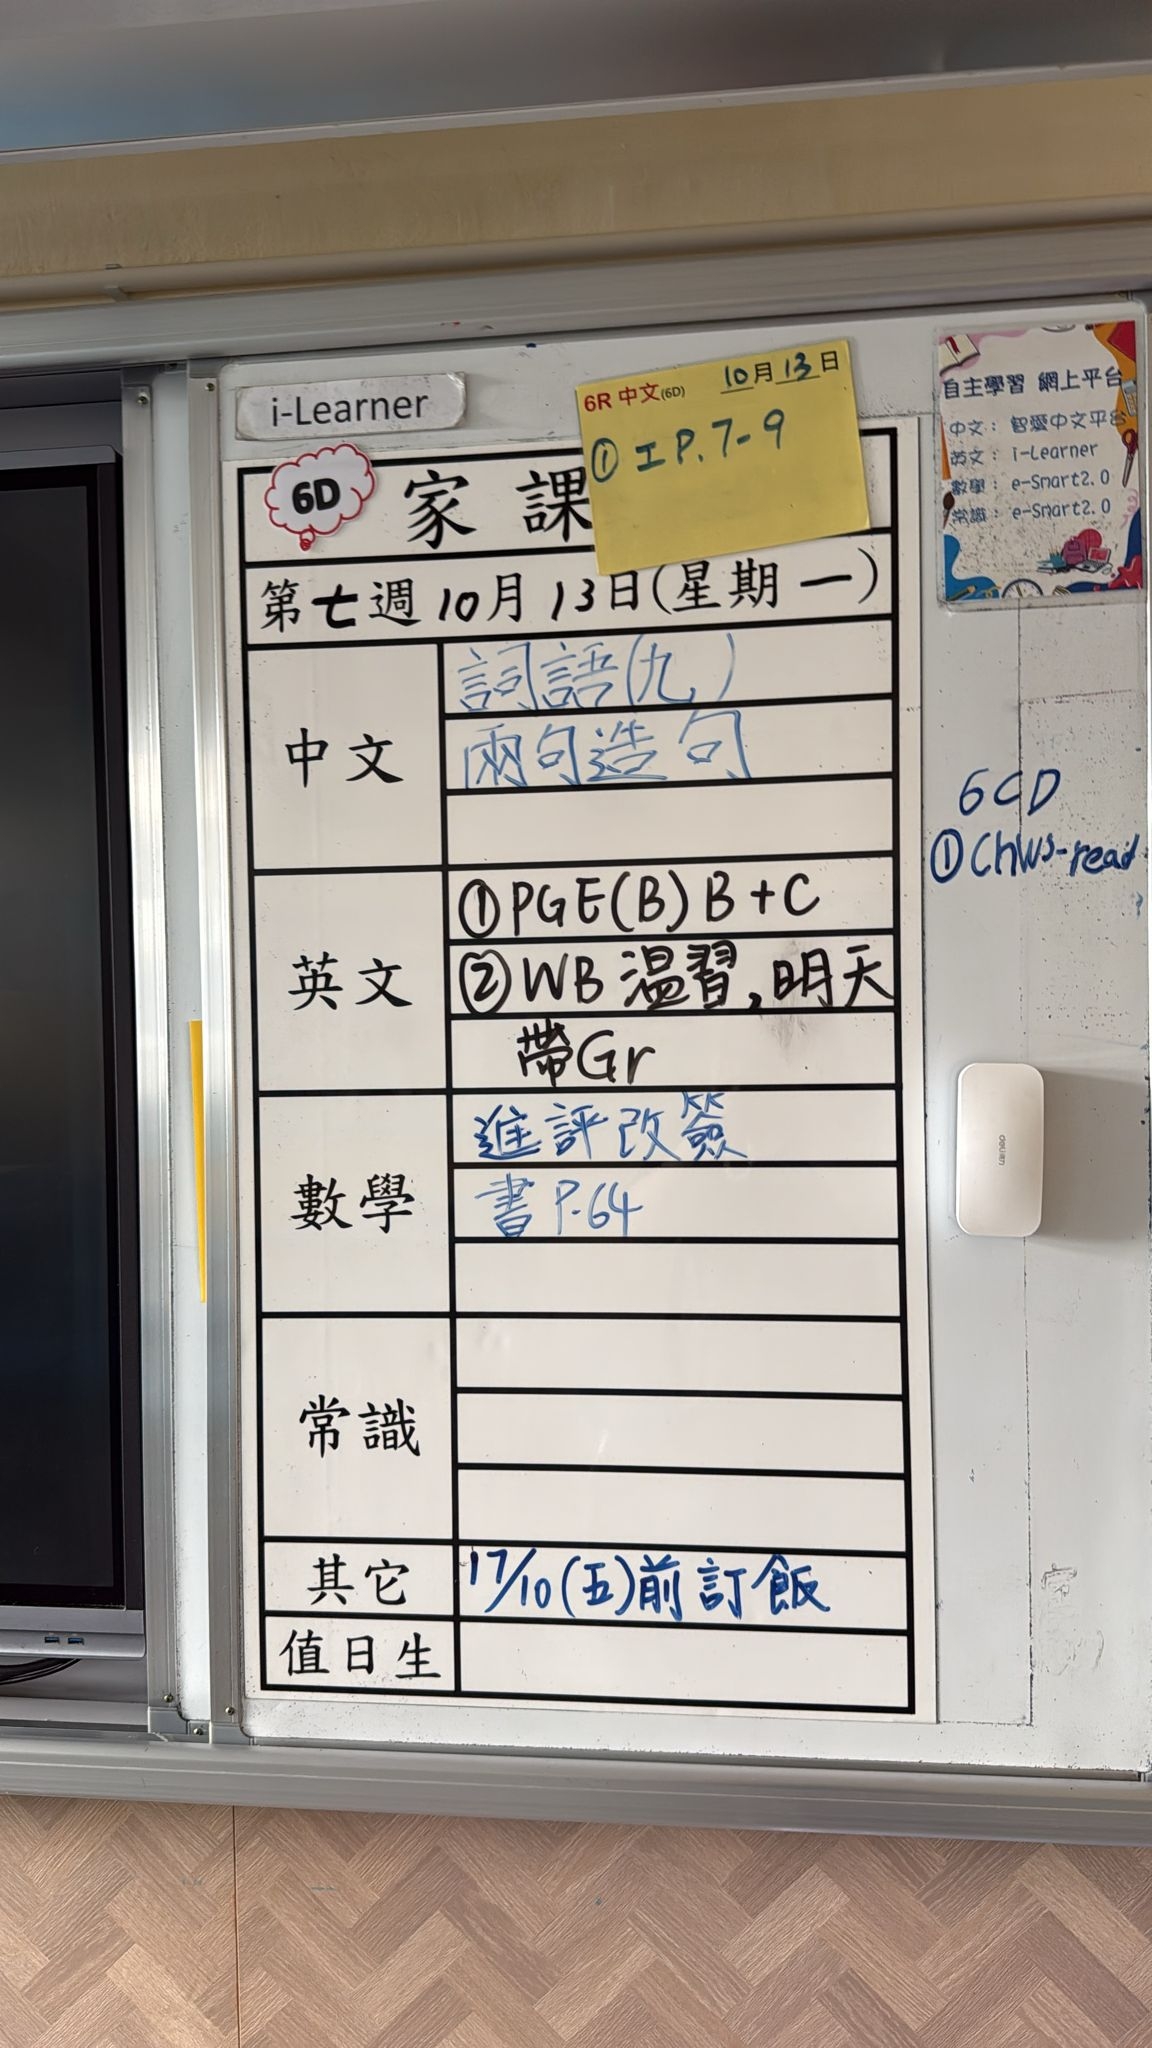 i-Learner
6R 中文(6D) 10月13日
① 工 P.7-9
自主學習 網上平台
中文： 智愛中文平台
英文： i-Learner
數學： e-Smart2.0
常識： e-Smart2.0
6D 家課
第七週10月13日(星期一)
中文
詞語(九)
兩句造句
6CD
① ChWS-read
英文
①PGE(B) B+C
②WB 溫習,明天
帶Gr
數學
進評改簽
書 P.64
deli
常識
其它
17/10(五)前訂飯
值日生